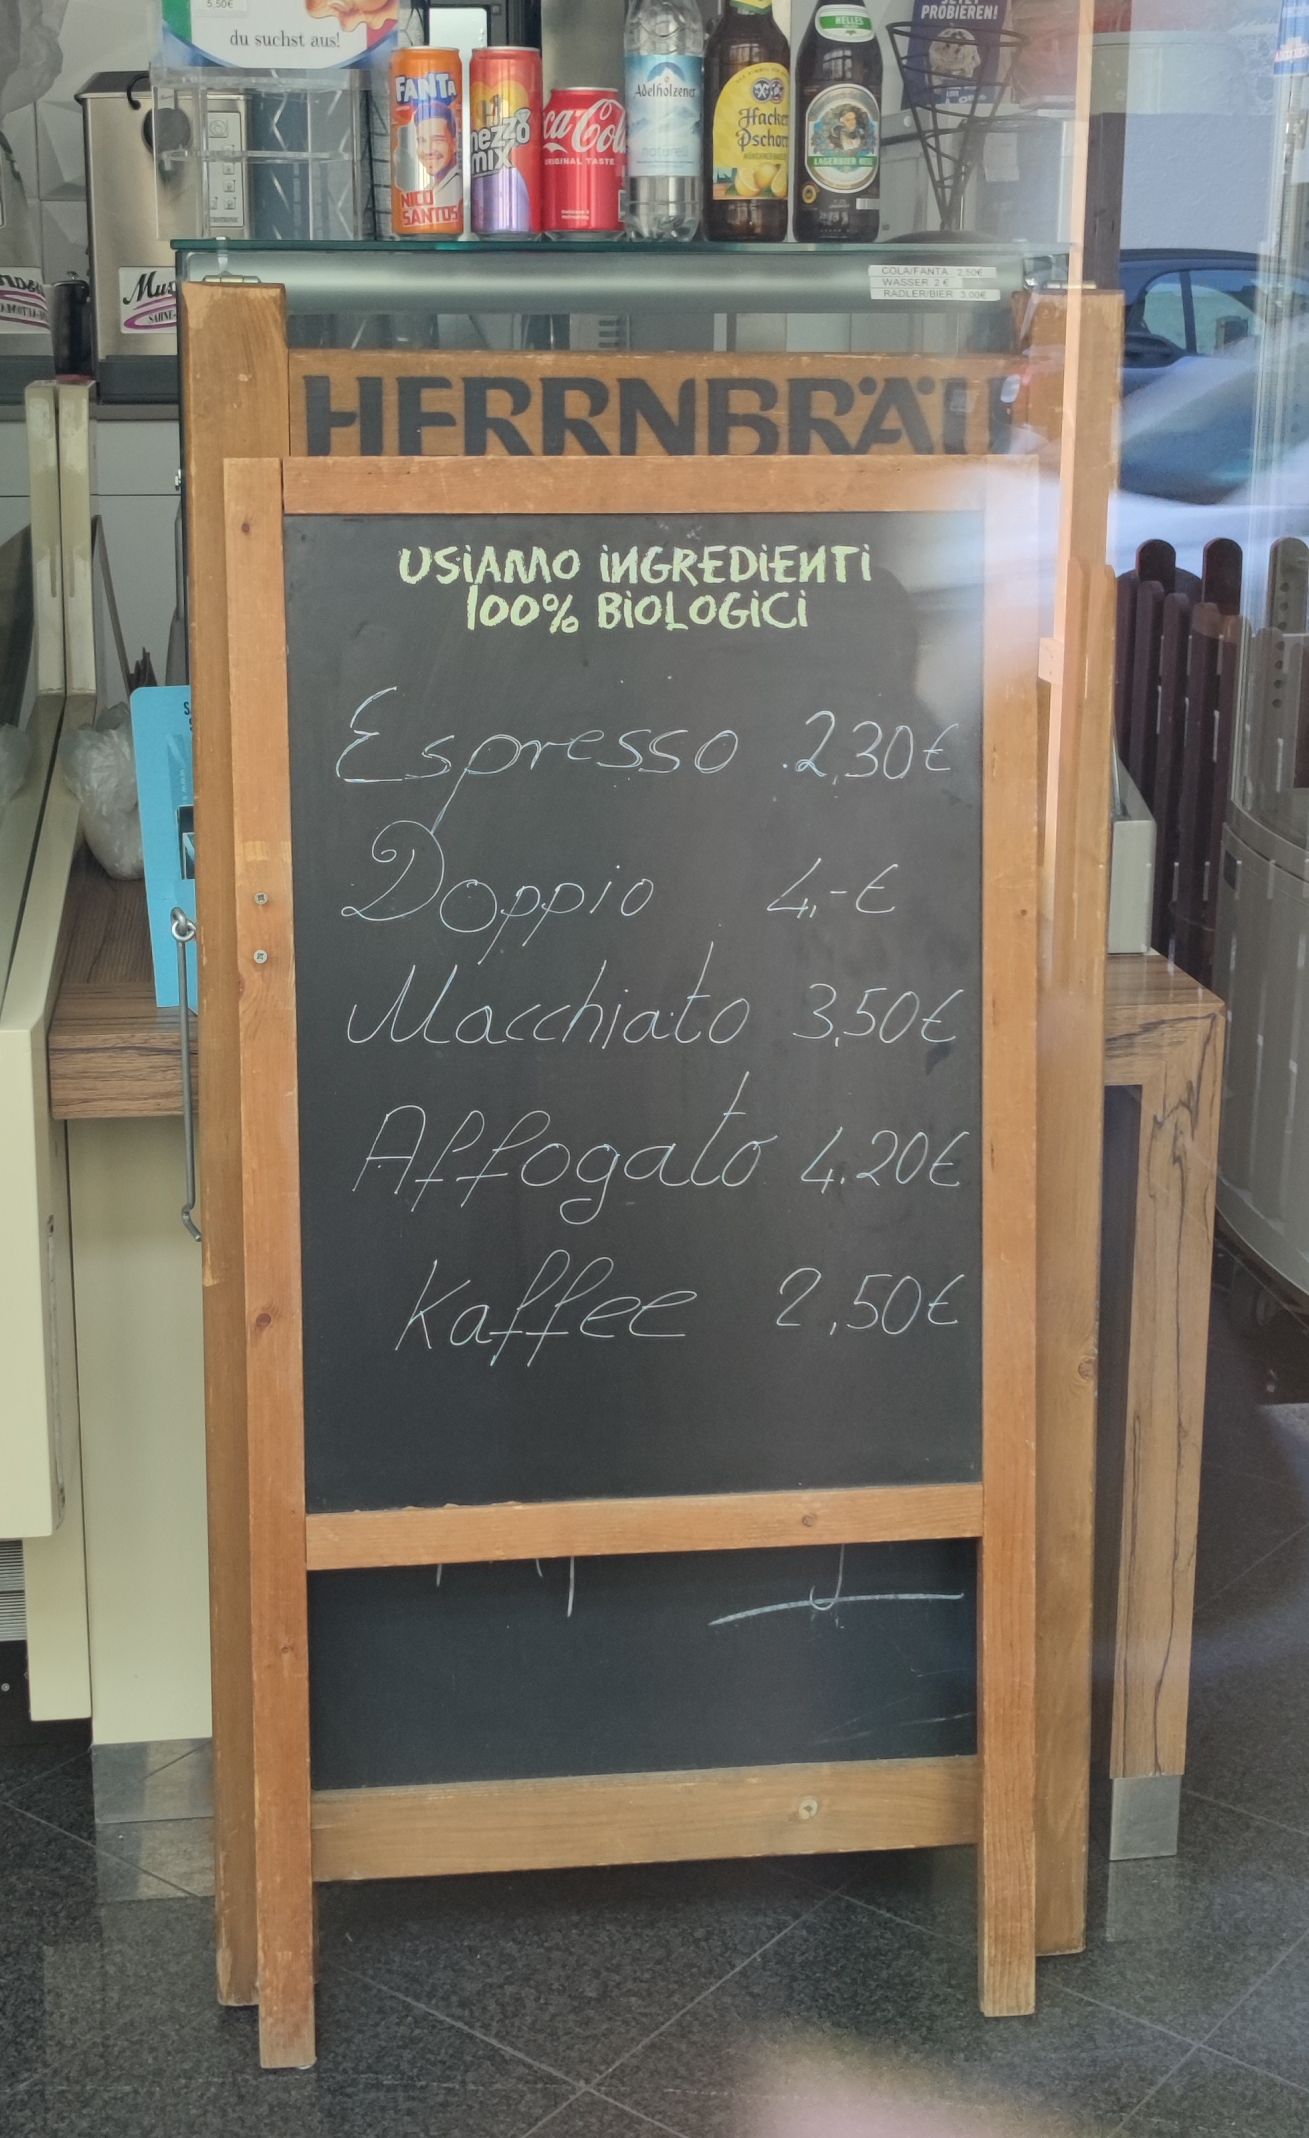 5,50€
du suchst aus!
JETZT
PROBIEREN!
FANTA
NICO
SANTOS
mezzo
mix
ca-Cola
ORIGINAL TASTE
Adelholzener
naturell
Hacker
Pschorr
HELLES
LAGERBIER HELL
COLA/FANTA 2,50€
WASSER 2 €
RADLER/BIER 3,00€
HERRNBRÄU
USiAMO iNGREDiENTi
100% BiOLOGiCi
Espresso 2,30€
Doppio 4,-€
Macchiato 3,50€
Affogato 4.20€
Kaffee 2,50€